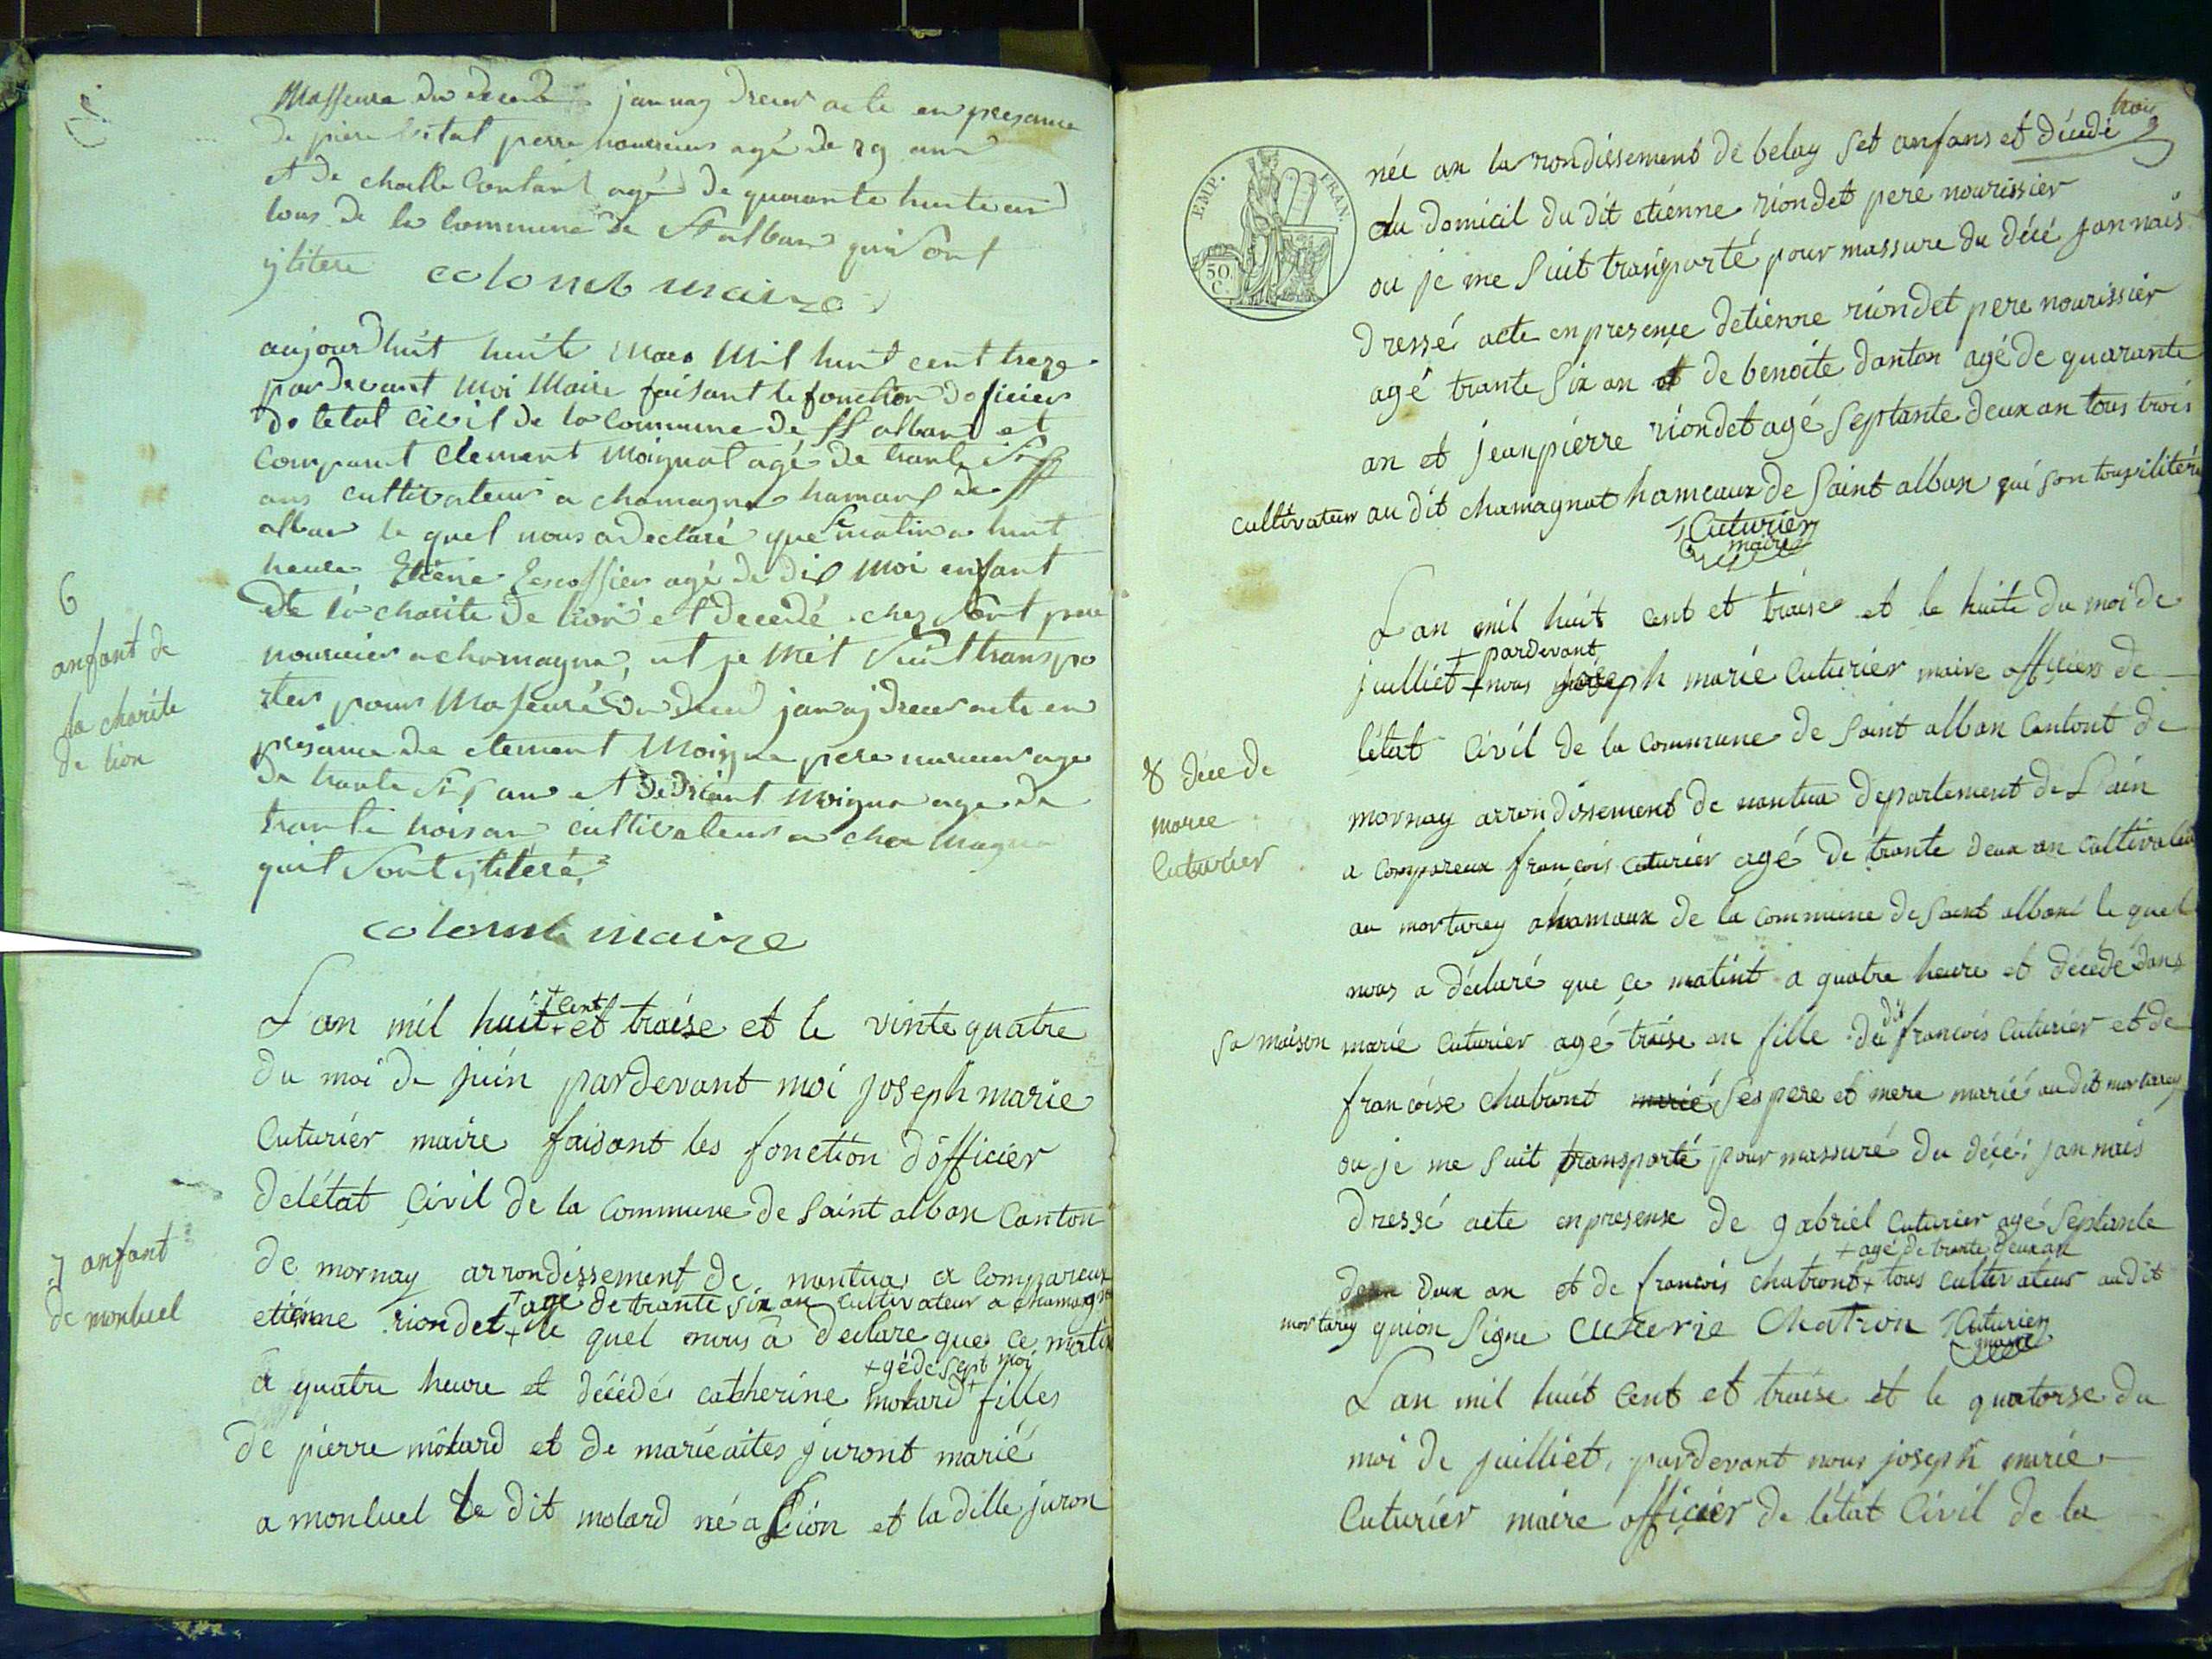 Masseure du decede jannay drecer acte en presance
de piere vital perre nouricier agé de 29 ans
et de charle Contant agé de quarante huite an
tous de la commune de St alban qui sont
ylitere colomb maire
aujourdhuit huite Mars Mil huit cent treze
par devant Moi Maire faisant le fonction doficier
de letat civil de la Commune de St alban et
comparut Clement Moignat agé de trante six
ans cultivateur a chamagna hamant de St
alban le quel nous a declaré que ce matin a huit
heure Etiene Escoffier agé de dix Moi enfant
de la charite de lion et decedé chez sont pere
nouricier a chamagna, et je Met suit transpo
rter pour Maseuré du deced janay drecer acte en
presance de clement Moigna pere nuricier age
de trante six ans et de Moigna age de
trante trois an cultivateur a cha Magna
quit sont ylitéré
colomb maire
6
anfant de
la charite
de lion
L'an mil huit + et traise et le vinte quatre
+ cent
du moi de juin pardevant moi joseph marie
Cuturier maire faisant les fonction d'officier
de l'état Çivil de la Commune de Saint alban Canton
de mornay arrondissement de nantua a Compareux
etiénne riondet + le quel nous â declare que ce matin
+ agé de trante six an cultivateur a chamagna
a quatre heure et décédé catherine molard + filles
+ gé de sept moi
de pierre molard et de marie aites juront marié
a monluel le dit molard né a Lion et la ditte juron
7 anfant
de monluel
trois
EMP. FRAN.
50 C.
née an la rondissement de belay set anfans et décédé
au domicil du dit etiénne riondet pere nourissier
ou je me suit transporté pour massure du déçé jan nais
dressé acte en presençe detiénne riondet pere nourissier
agé trante six an et de benoite danton agé de quarante
an et jean pierre riondet agé septante deux an tous trois
cultivateur au dit chamagnat hameaux de Saint alban qui son tous ilitéré
Cuturier
maire
L'an mil huit cent et traise et le huite du moi de
juilliét + nous joseph marie Cuturier maire officier de
+ pardevant
l'état Civil de la Commune de Saint alban Cantont de
mornay arrondissement de nantua departement de L'ain
a Compareux françois Cuturier agé de trante deux an Cultivateur
au mortarey ahamaux de la Commune de Saint alban le quel
nous a déclaré que çe matint a quatre heure et décédé dans
sa maison marié Cuturier agé traise an fille du dit francois Cuturier et de
francoise chabront marié ses pere et mere marié au dit mortarey
ou je me suit transporté pour massuré du décé; jan nais
dressé acte en presense de gabriel Cuturier agé Septante
deux deux an et de francois chatront + tous cultivateur au dit
+ agé de trante deux an
mortarey quion Signe cuterie Chatron Cuturier
maire
8 déce de
marie
Cuturier
L'an mil huit Cent et traise et le quatorse du
moi de juilliet, pardevant nous joseph marie
Cuturiér maire officiér de l'état Civil de la